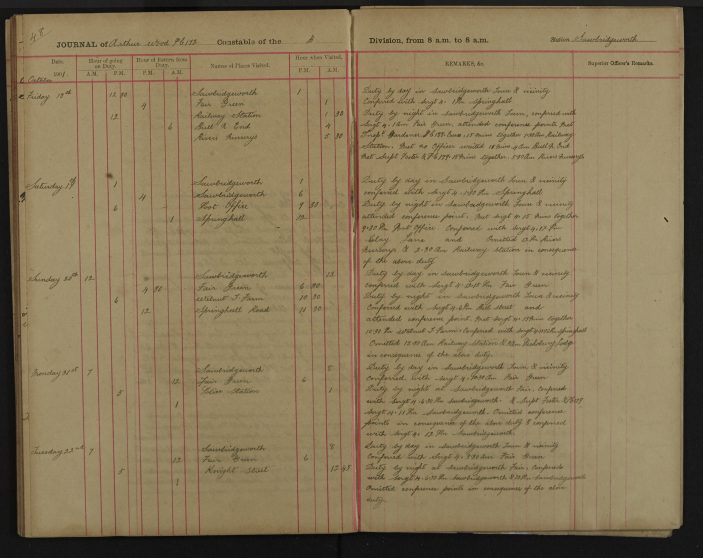 48
JOURNAL of Arthur Wood PC 173 Constable of the A Division, from 8 a.m. to 8 a.m. Station Sawbridgeworth
Date. Hour of going on Duty. Hour of Return from Duty. Names of Places Visited. Hour when Visited. REMARKS, &c. Superior Officer's Remarks.
1901 A.M. P.M. A.M. P.M. P.M. A.M.
Friday 18th 12 30 Sawbridgeworth 1 Duty by day in Sawbridgeworth Town & vicinity
4 Fair Green 1 Conferred with Sergt 4. 1 Pm Springhall
12 Railway Station 1 30 Duty by night in Sawbridgeworth Town, conferred with
6 Bull End 4 Sergt 4. 1 Am Fair Green, attended conference points Met
Rivers Nurserys 5 30 Inspr Gardener 15 mins together Railway
Station. Met no Officer waited 15 mins 4 Am Bull End
Met Sergt Foster & 15 mins together. 5.30 Am Rivers Nurserys
Saturday 19th 1 Sawbridgeworth 1 Duty by day in Sawbridgeworth Town & vicinity
4 Sawbridgeworth 6 conferred with Sergt 4. Pm Springhall
6 Post Office 9 30 Duty by night in Sawbridgeworth Town & vicinity
1 Springhall 12 attended conference point. Met Sergt 4. 15 mins together
9.30 Pm Post Office. Conferred with Sergt 4.
Lane and Omitted Rivers
Nurserys & 2.30 Am Railway Station in consequence
of the above duty
Sunday 20th 12 Sawbridgeworth 12 Duty by day in Sawbridgeworth Town & vicinity
4 30 Fair Green 6 30 conferred with Sergt 4. Pm Fair Green
6 Farm 10 30 Duty by night in Sawbridgeworth Town & vicinity
12 Springhall Road 11 30 Conferred with Sergt 4. Pm Street and
attended conference point. Met Sergt 4. 15 mins together
10.30 Pm Farm. Conferred with Sergt 4. Springhall
Omitted 12.30 Am Railway Station & Lodge
in consequence of the above duty.
Monday 21st 7 Sawbridgeworth 8 Duty by day in Sawbridgeworth Town & vicinity
12 Fair Green 6 Conferred with Sergt 4. Am Fair Green
5 Police Station 1 Duty by night at Sawbridgeworth Fair, conferred
1 with Sergt 4. Pm Sawbridgeworth & Sergt Foster
Sergt 4. 11 Pm Sawbridgeworth. Omitted conference
points in consequence of the above duty & conferred
with Sergt 4. 12 Pm Sawbridgeworth.
Tuesday 22nd 7 Sawbridgeworth 8 Duty by day in Sawbridgeworth Town & vicinity
12 Fair Green 6 Conferred with Sergt 4. Am Fair Green
5 Knight Street 12 45 Duty by night at Sawbridgeworth Fair, conferred
1 with Sergt 4. Pm Sawbridgeworth & Sawbridgeworth
Omitted conference points in consequence of the above
duty.